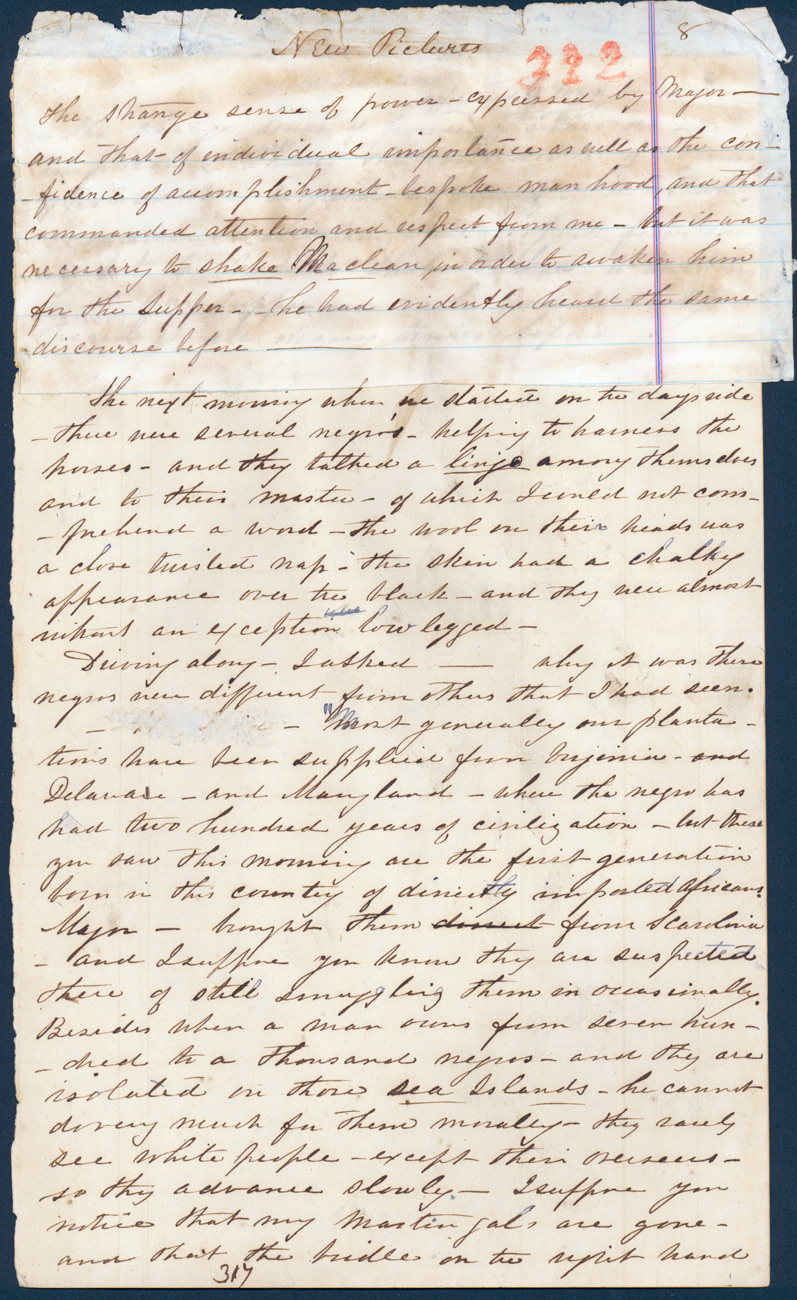 New Pictures 8
322
The strange sense of power - expressed by Major —
and that of individual importance as well as the con-
-fidence of accomplishment - bespoke manhood and that
commanded attention and respect from me - but it was
necessary to shake Maclean in order to awaken him
for the supper - he had evidently heard the same
discourse before —
The next morning when we started on the days ride
- there were several negros - helping to harness the
horses - and they talked a lingo among themselves
and to their master - of which I could not com-
-prehend a word - the wool on their heads was
a close twisted nap - the skin had a chalky
appearance over the black - and they were almost
without an exception bow legged -
Driving along - I asked — why it was these
negros were different from others that I had seen.
- "Most generally our planta-
tions have been supplied from Virginia - and
Delaware - and Maryland - where the negro has
had two hundred years of civilization - but these
you saw this morning are the first generation
born in this country of directly imported Africans.
Major — brought them direct from S Carolina
- and I suppose you know they are suspected
there of still smuggling them in occasionally.
Besides when a man owns from seven hun-
-dred to a thousand negros - and they are
isolated on those sea Islands - he cannot
do very much for them morally - they rarely
see white people - except their overseers -
so they advance slowly - I suppose you
notice that my Martingals are gone -
and that the bridle on the right hand
317